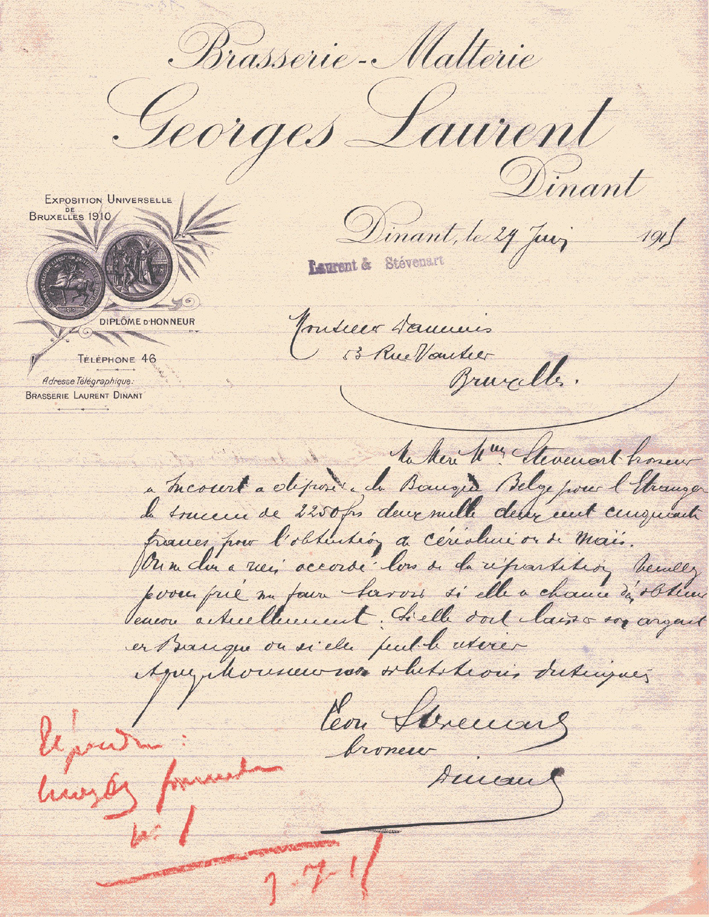 Brasserie-Malterie
Georges Laurent
Dinant
EXPOSITION UNIVERSELLE
DE
BRUXELLES 1910
DIPLÔME D'HONNEUR
TÉLÉPHONE 46
Adresse Télégraphique:
BRASSERIE LAURENT DINANT
Dinant, le 29 Juin 1915
Laurent & Stévenart
Monsieur
53 Rue Vautier
Bruxelles.
Ma Mère Mme Stévenart brasseur
a Incourt a déposé a la Banque Belge pour l'Etranger
la somme de 2250frs deux mille deux cent cinquante
francs pour l'obtention de céréaline ou de maïs.
On ne lui a rien accordé lors de la répartition Veuillez
me faire savoir si elle a chance d'en obtenir
encore actuellement. Si elle doit laisser son argent
en Banque ou si elle peut le retirer
Agréez Monsieur mes salutations distinguées
Léon Stévenart
brasseur
Dinant
Répondre :
formule
no 1
3-7-15